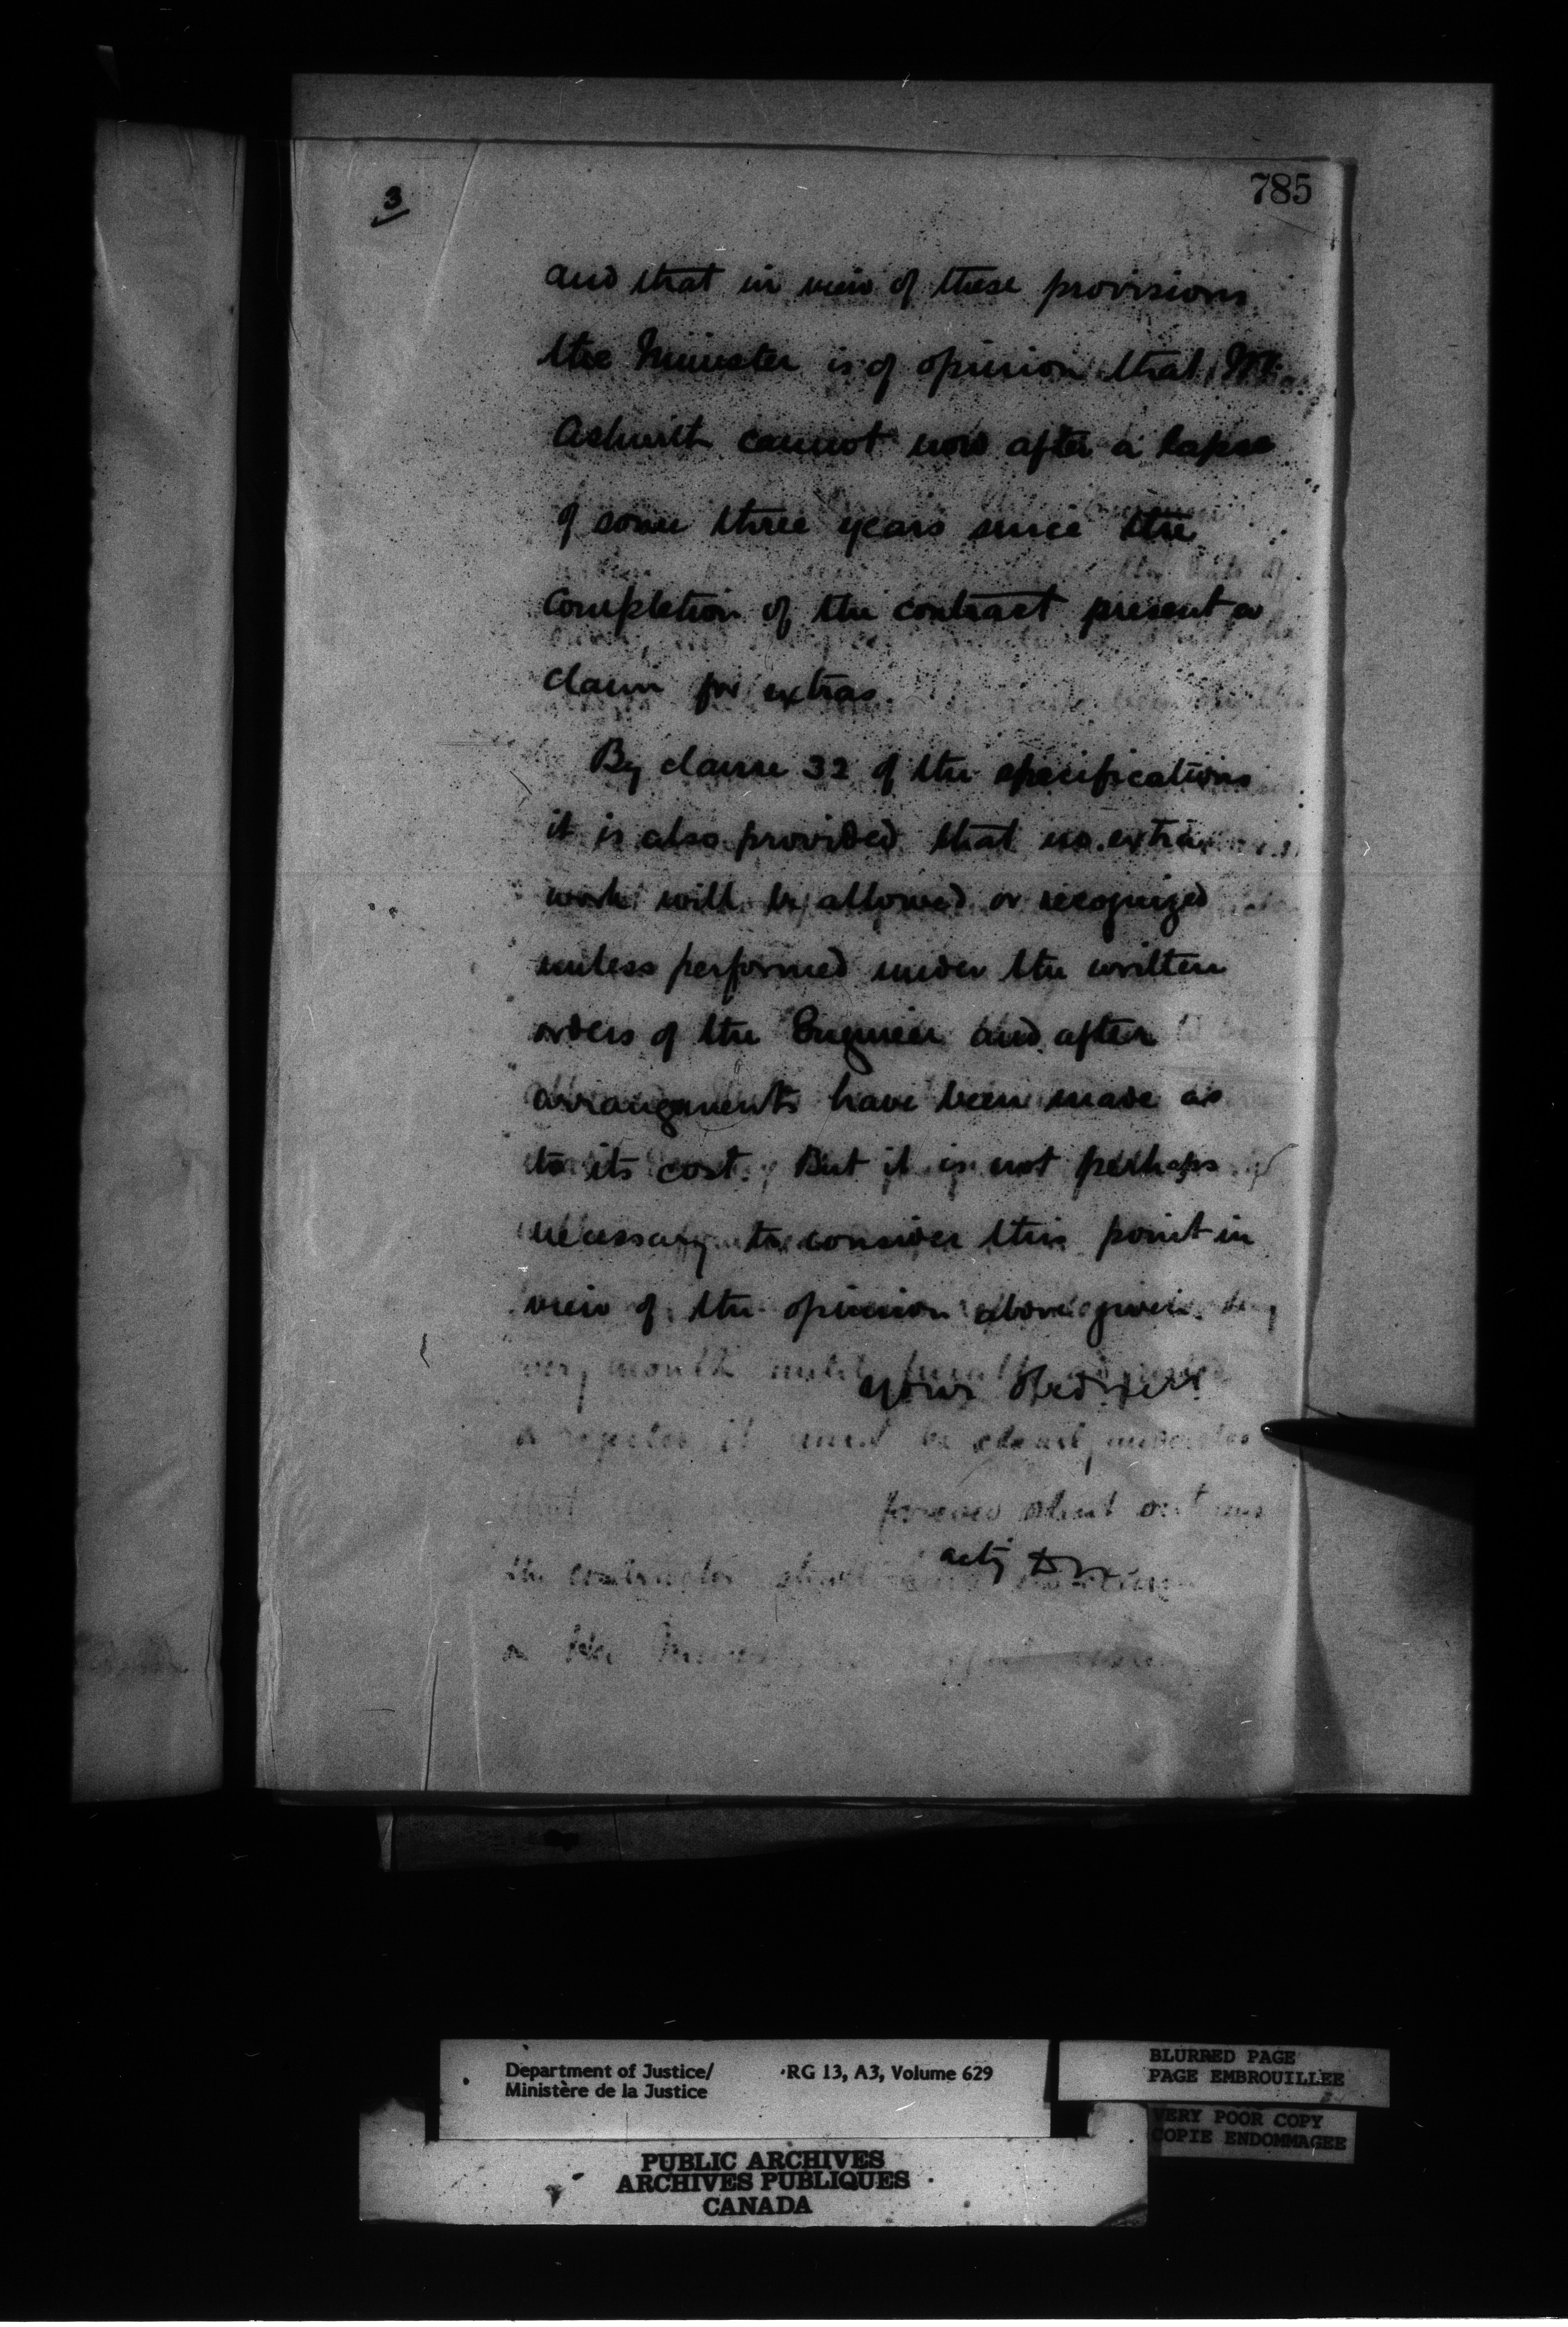 3
785
and that in view of these provisions
the Minister is of opinion that Mr.
cannot now after a lapse
of some three years since the
completion of the contract present a
claim for extras.
By clause 32 of the specifications
it is also provided that no extra
work will be allowed or recognized
unless performed under the written
orders of the Engineer and after
arrangements have been made as
to its cost. But it is not perhaps
necessary to consider this point in
view of the opinion above given.
every month until finally
it must be
forever shut out
actg
the contractor shall
Department of Justice/ RG 13, A3, Volume 629
Ministère de la Justice
BLURRED PAGE
PAGE EMBROUILLEE
VERY POOR COPY
COPIE ENDOMMAGEE
PUBLIC ARCHIVES
ARCHIVES PUBLIQUES
CANADA